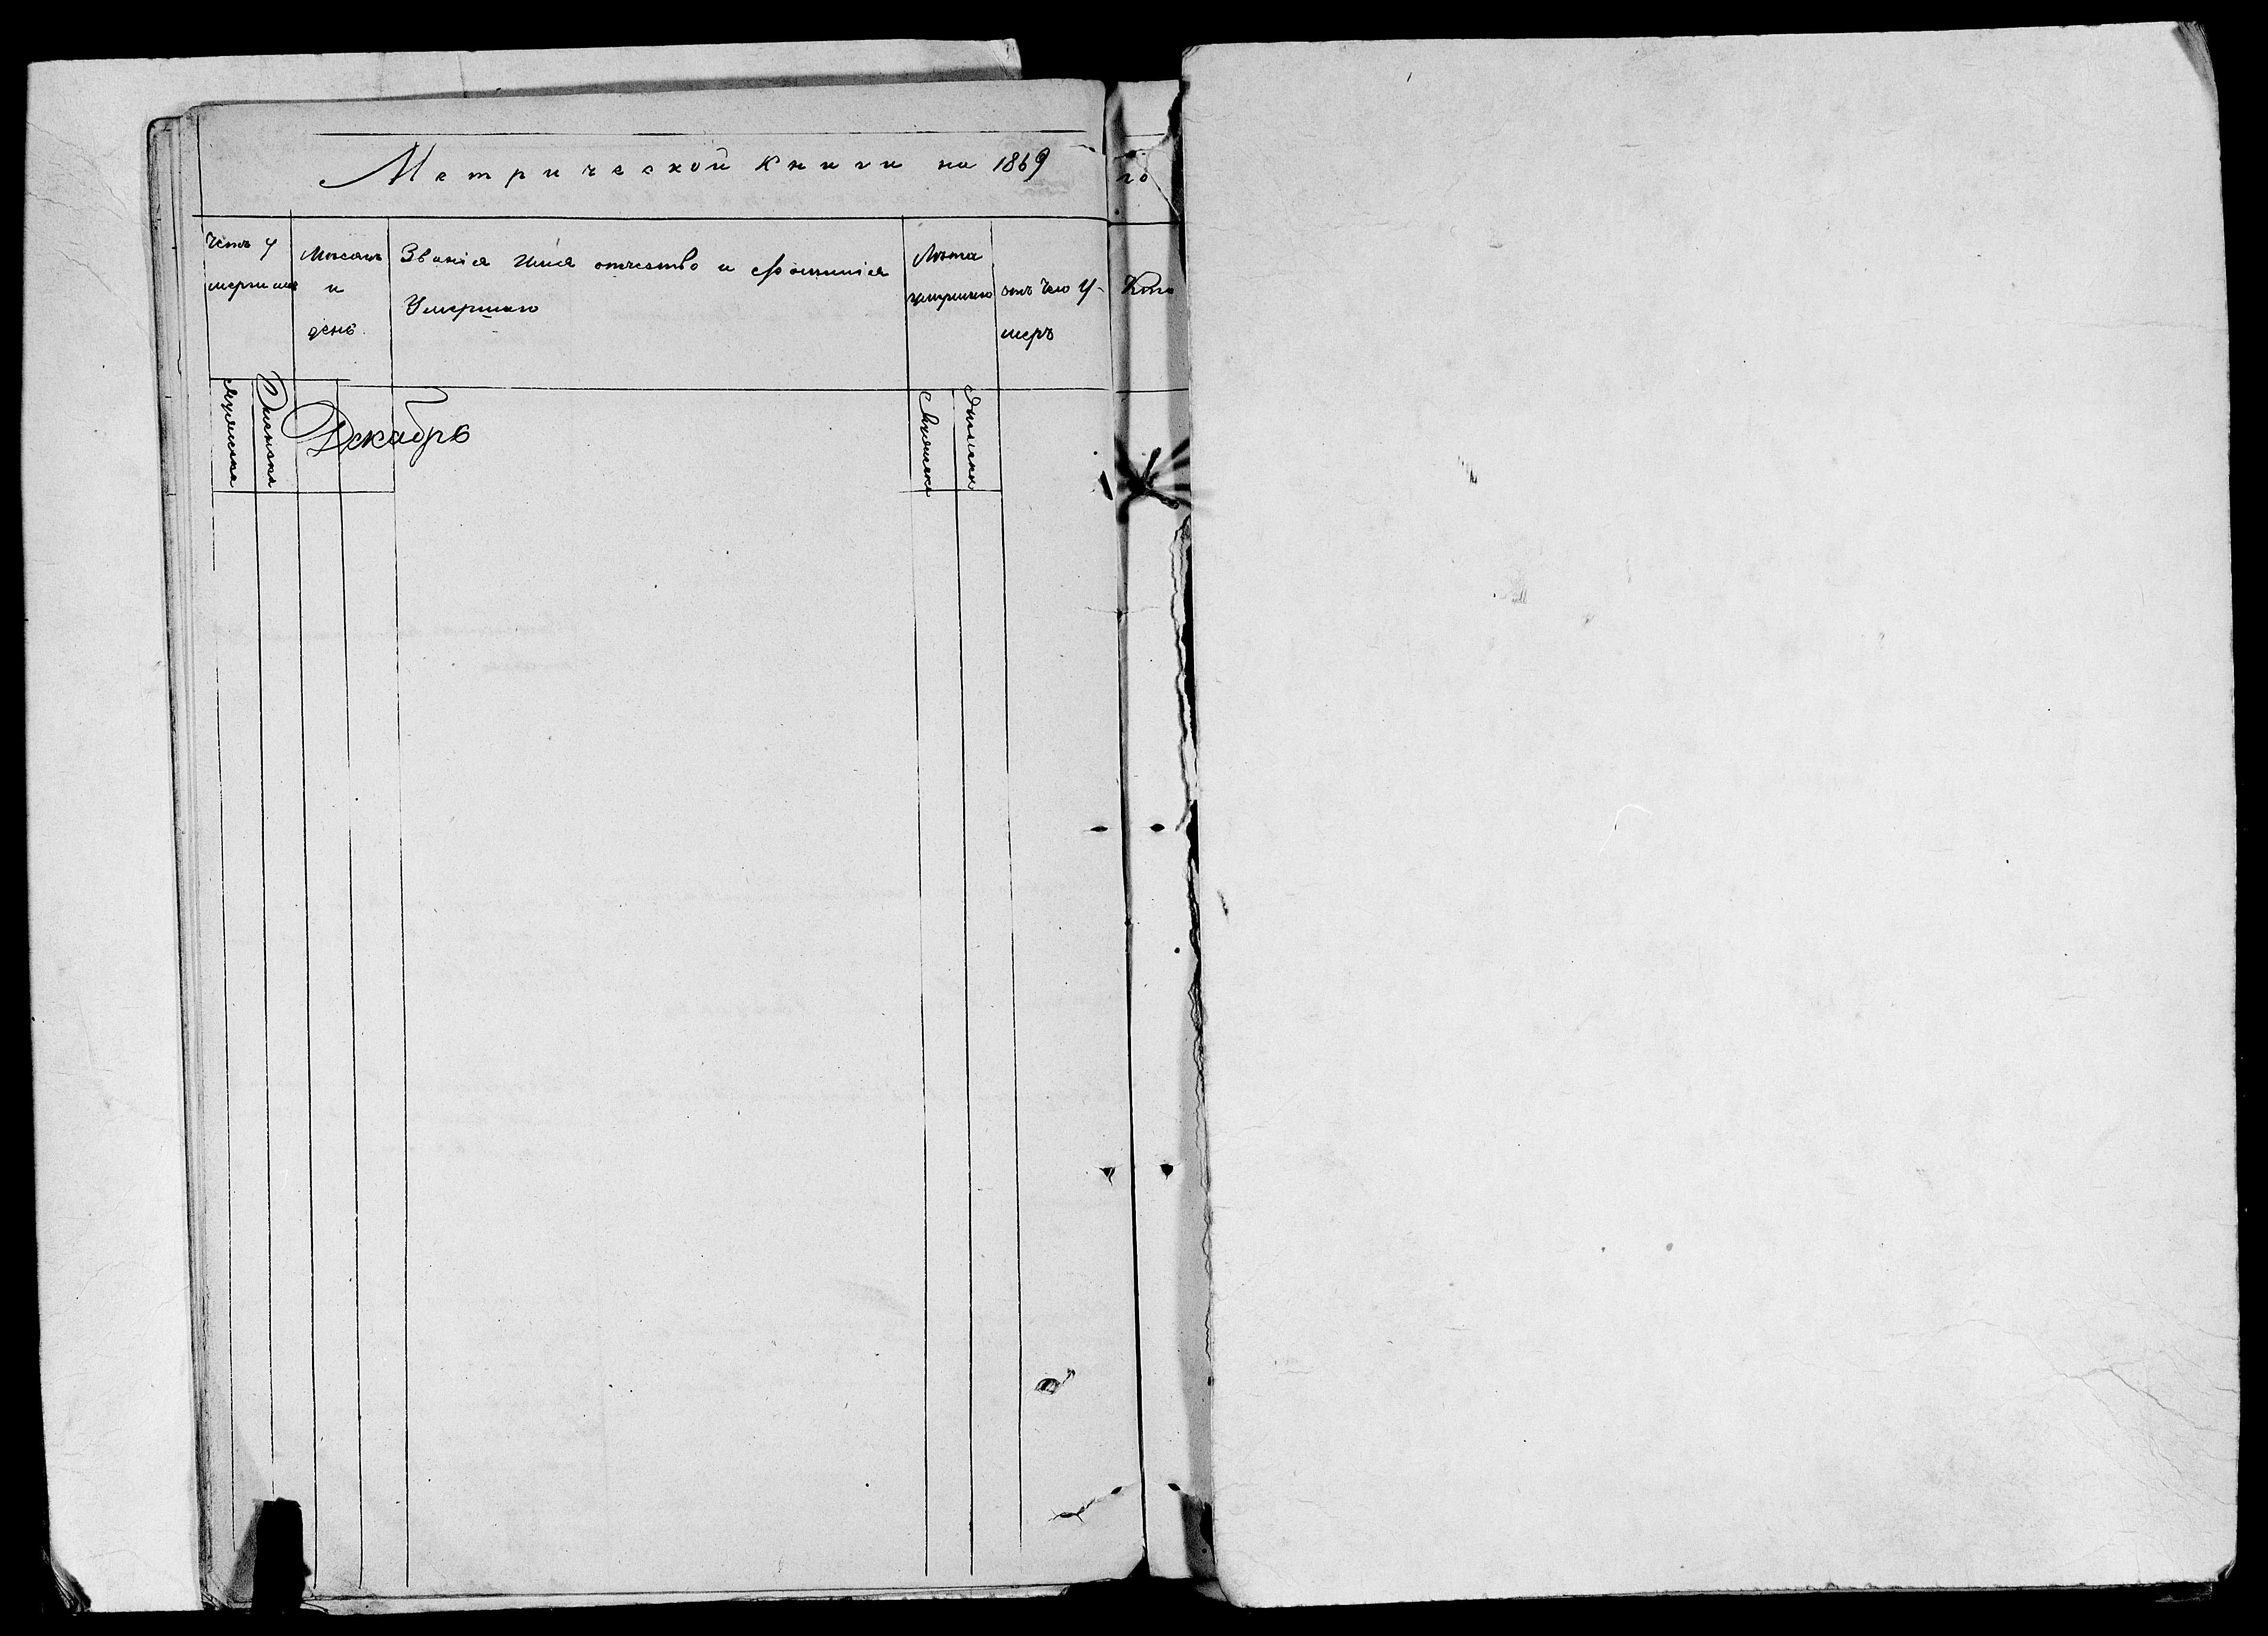 Метрической книги на 1869
го
Счетъ у
мершихъ
Мѣсяцъ
и
день
Званія Имя отчество и фамилія
Умершаго
Лѣта
умершаго
отъ чего У-
меръ
Кто
Мужеска
Женска
Декабрь
Мужска
Женска